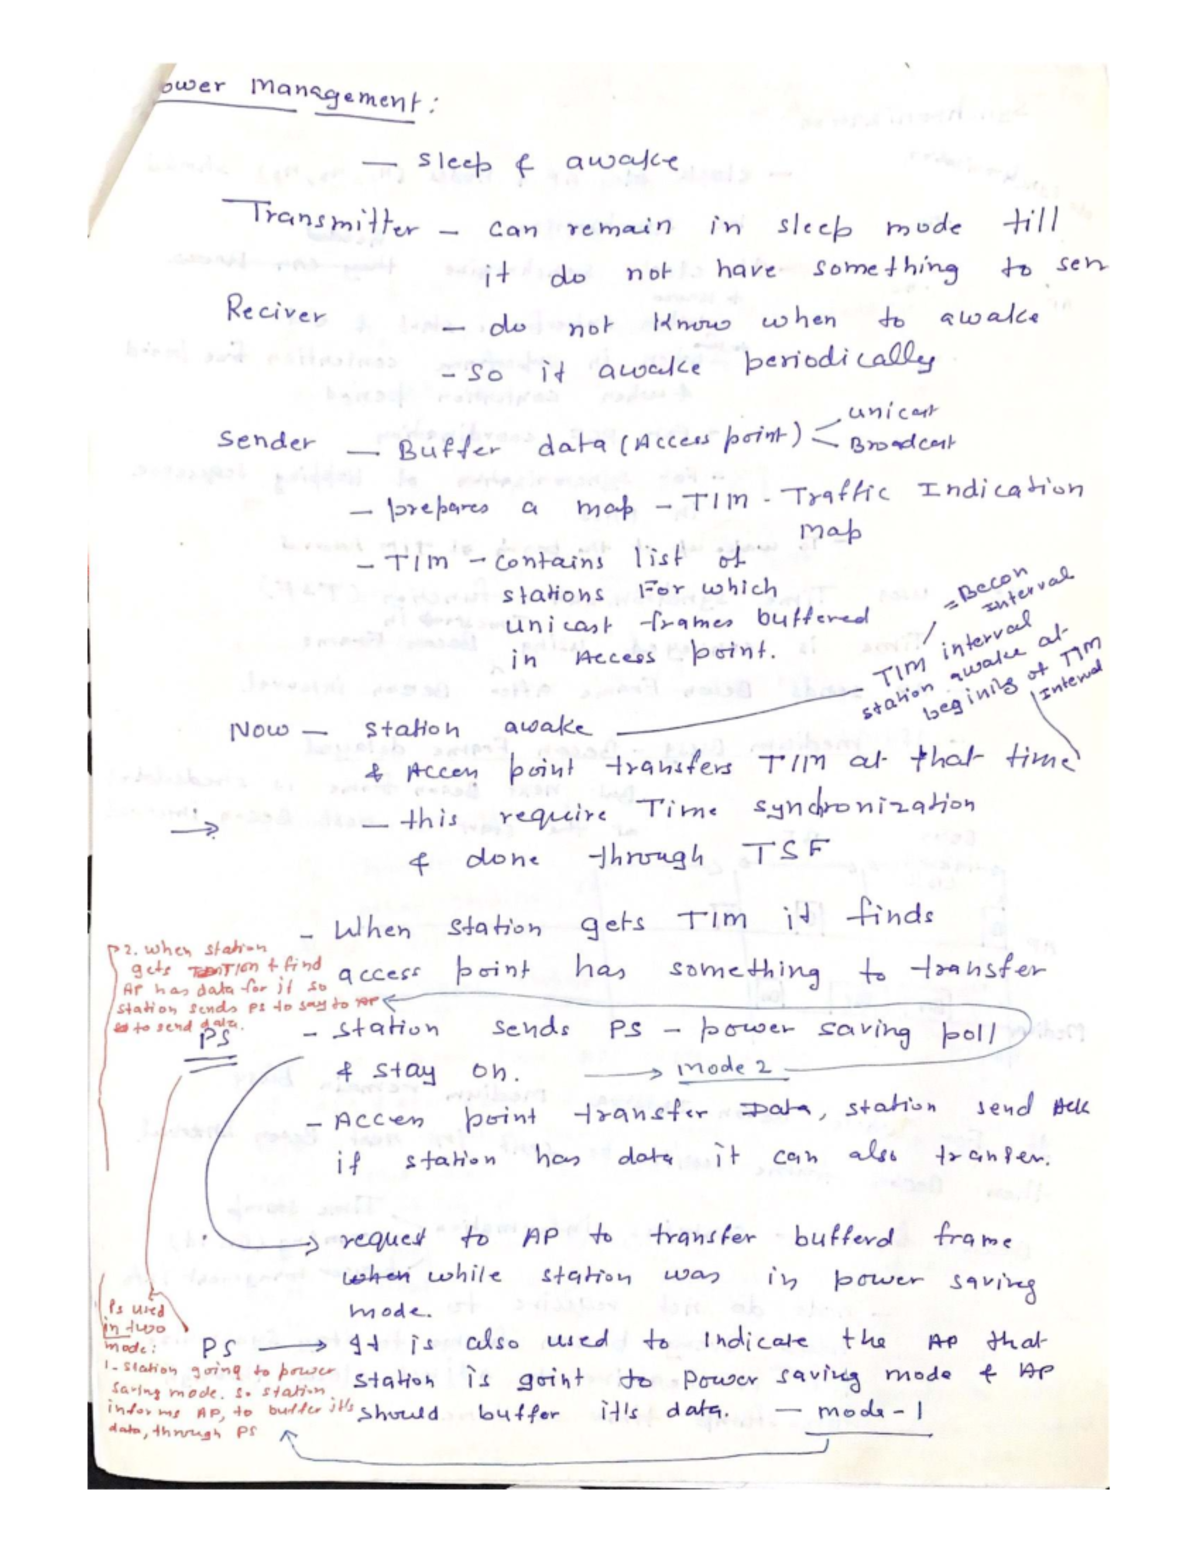 ower Management:
— sleep & awake
Transmitter — can remain in sleep mode till
it do not have something to sen
Reciver — do not know when to awake
- so it awake periodically
Sender — Buffer data (Access point) < unicast
Broadcast
— prepares a map — TIM - Traffic Indication
map
— TIM — contains list of
stations For which
unicast frames buffered
in Access point.
= Becon
Interval
TIM interval
station awake at
begining of TIM
Interval
Now — station awake
& Acces point transfers TIM at that time
— this require Time synchronization
& done through TSF
— When station gets TIM it finds
access point has something to transfer
2. when station
gets TIM & find
AP has data for it so
station sends PS to say to AP
to send data.
PS
- station sends PS — power saving poll
& stay on. → mode 2
— Acces point transfer Data, station send Ack
if station has data it can also tranfer.
→ request to AP to transfer bufferd frame
when while station was in power saving
mode.
Ps used
in two
mode:
1- station going to power
saving mode. so station
informs AP, to buffer it's
data, through PS
PS → It is also used to Indicate the AP that
station is goint to Power saving mode & AP
should buffer it's data. — mode - 1